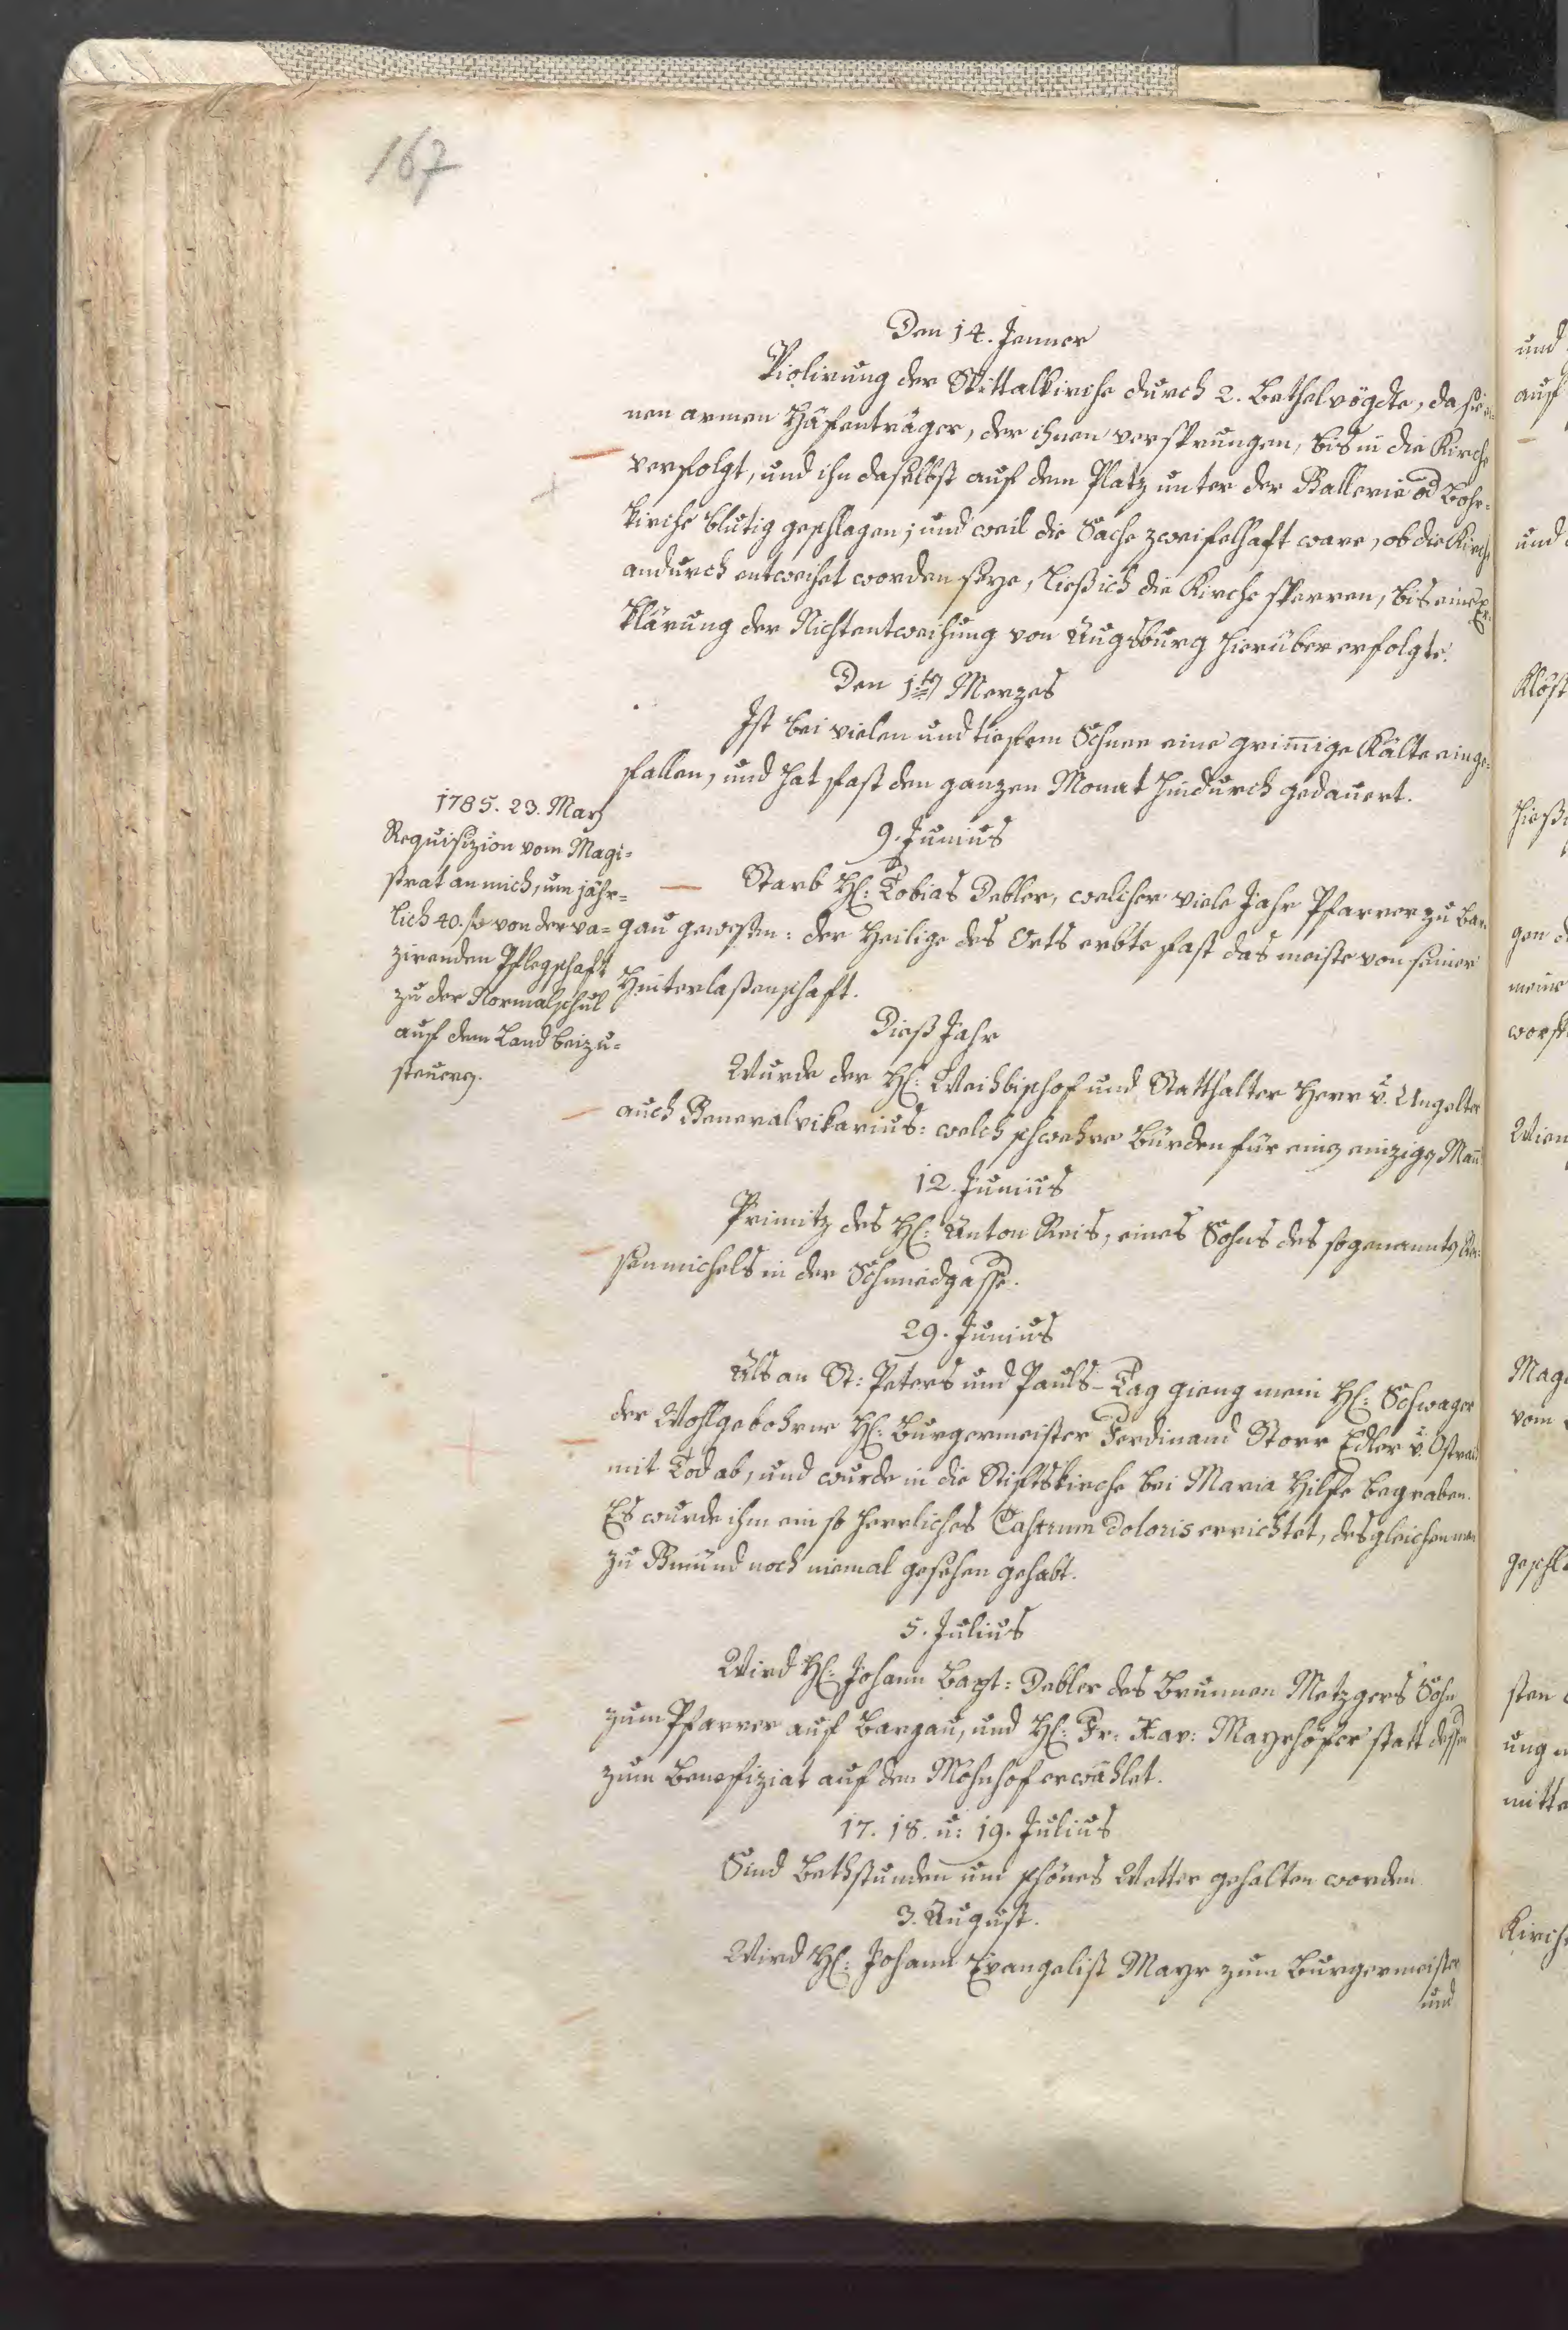 167
Den 14. Jenner
Violirung der Spittalkirche durch 2. Bethelvögdte, da sie ei-
nen armen Häfenträger, der ihnen versprungen, bis in die Kirche
verfolgt, und ihn daselbst auf dem Platz unter der Gallerie od Bohr-
kirche blutig geschlagen; und weil die Sache zweifelhaft ware, ob die Kirche
andurch entweihet worden seye, ließ ich die Kirche sperren, bis eine Er-
klärung der Nichtentweihung von Augsburg hierüber erfolgte.
Den 1ten Merzes
Ist bei vielen und tiefem Schnee eine grimige Kälte einge-
fallen, und hat fast den ganzen Monat hindurch gedauert.
9. Junius
Starb H: Tobias Debler, welcher viele Jahr Pfarrer zu Bar-
gau gewesen: der Heilige des Orts erbte fast das meiste von seiner
Hinterlaßenschaft.
1785. 23. Marz
Requisizion vom Magi-
strat an mich, um jähr-
lich 40. fl von der va-
zirenden Pflegschaft
zu der Normalschul
auf dem Land beizu-
steuern.
Dieß Jahr
Wurde der H: Weihbischof und Statthalter Herr v. Ungelter
auch Generalvikarius: welch schwehre Bürden für einen einzigen Man
12. Junius
Primitz des H: Anton Reis, eines Sohns des sogenannten
senmichels in der Schmidgasse.
29. Junius
Als an St: Peters und Pauls-Tag gieng mein H: Schwager
der Wohlgebohrne H: Burgermeister Ferdinand Storr Edler v. Ostrach
mit Tod ab, und wurde in die Stiftskirche bei Maria Hilfe begraben.
Es wurde ihm ein so herrliches Castrum Doloris errichtet, desgleichen man
zu Gmünd noch niemal gesehen gehabt.
5. Julius
Wird H: Johann Bapt: Debler des Brunnen Metzgers Sohn
zum Pfarrer auf Bargau, und H: Fr: Xav: Mayrhöfer statt dessen
zum Benefiziat auf den Mohnhof erwählet.
17. 18. u: 19. Julius
Sind Bethstunden um schönes Wetter gehalten worden
3. August.
Wird H: Johann Evangelist Mayr zum Burgermeister
und